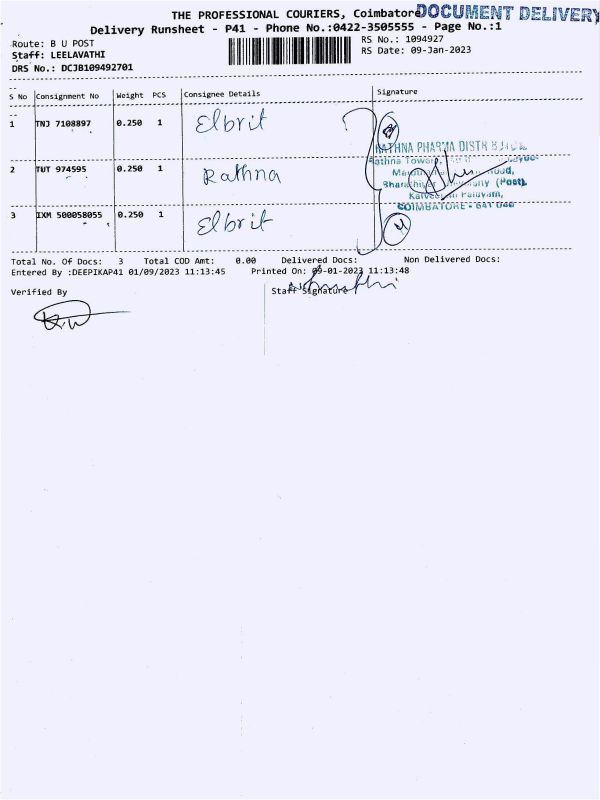 THE PROFESSIONAL COURIERS, Coimbatore DOCUMENT DELIVERY
Delivery Runsheet - P41 - Phone No.:0422-3505555 - Page No.:1
Route: B U POST
RS No.: 1094927
Staff: LEELAVATHI
RS Date: 09-Jan-2023
DRS No.: DCJB109492701
S No Consignment No Weight PCS Consignee Details Signature
1 TNJ 7108897 0.250 1 Elbrit
RATHNA PHARMA DISTR
2 TUT 974595 0.250 1 Rathna
(Post),
COIMBATORE - 641 046
3 IXM 500058055 0.250 1 Elbrit
Total No. Of Docs: 3 Total COD Amt: 0.00 Delivered Docs: Non Delivered Docs:
Entered By :DEEPIKAP41 01/09/2023 11:13:45 Printed On: 09-01-2023 11:13:48
Verified By Staff Signature